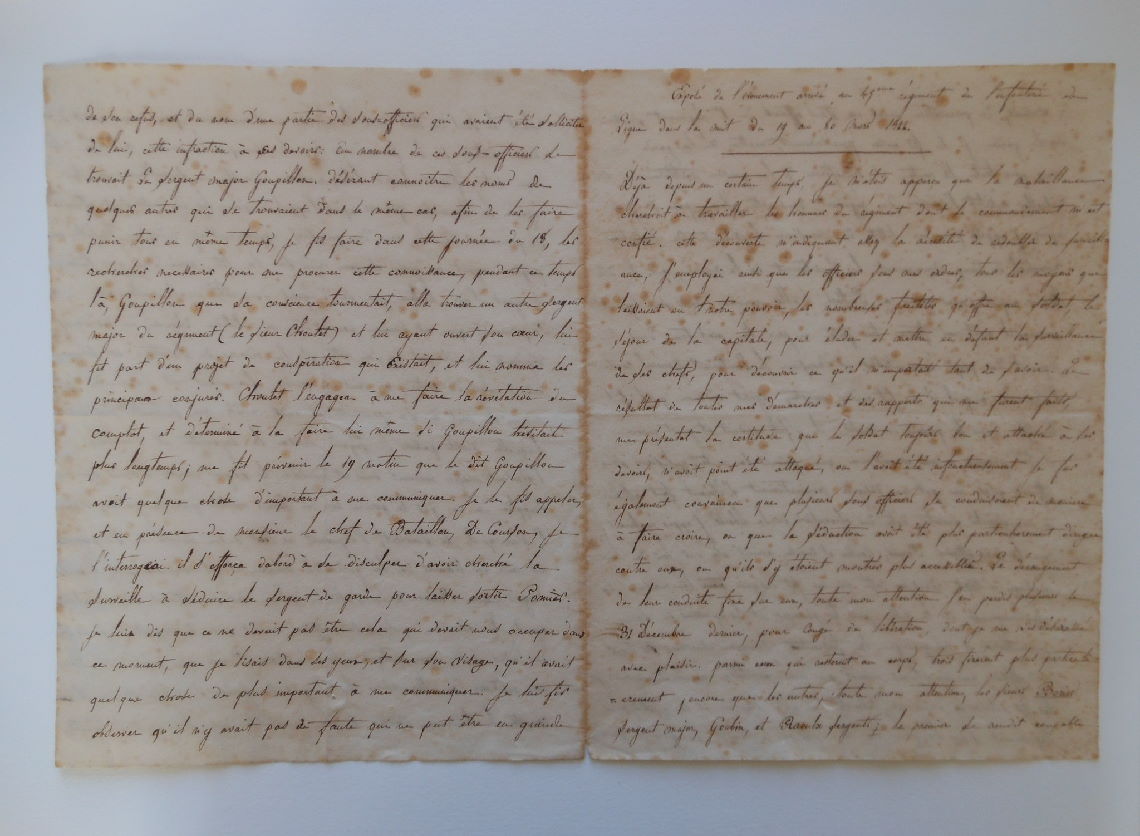 de son refus, et du nom d'une partie des sous-officiers qui avaient été sollicités
de lui, cette infraction à ses devoirs: Au nombre de ces sous-officiers se
trouvait le Sergent major Goupillon. Désirant connoître les noms de
quelques autres qui se trouvaient dans le même cas, afin de les faire
punir tous en même temps, je fis faire dans cette journée du 18, les
recherches necessaires pour me procurer cette connoissance, pendant ce temps
là, Goupillon que sa conscience tourmentait, alla trouver un autre Sergent
major du régiment (le Sieur Choulet) et lui ayant ouvert son cœur, lui
fit part d'un projet de conspiration qui Existait, et lui nomma les
principaux conjurés. Choulet l'engagea à me faire la révélation du
complot, et déterminé à la faire lui même si Goupillon hésitait
plus longtemps; me fit parvenir le 19 matin que le dit Goupillon
avait quelque chose d'important à me communiquer. Je le fis appeler,
et en présence de monsieur le chef de Bataillon, De Courson, je
l'interrogeai il s'efforça dabord à se disculper d'avoir cherché la
surveille à séduire le sergent de garde pour laisser sortir Pomier.
Je lui dis que ce ne devait pas être cela qui devait nous occuper dans
ce moment, que je lisais dans ses yeux, et sur son visage, qu'il avait
quelque chose de plus important à me communiquer. Je lui fis
observer qu'il n'y avait pas de faute qui ne put être en grande
Exposé de l'évènement arrivé, au 45eme régiment de l'infanterie de
ligne dans la nuit du 19 au 20 Mars 1822.
Déjà depuis un certain temps, je m'étois apperçu que la malveillance
cherchoit à travailler les hommes du régiment dont le commandement m'est
confié. cette découverte m'indiquant assez la nécessité de redoubler de surveill-
ance, J'employai ainsi que les officiers sous mes ordres, tous les moyens que
laissaient en notre pouvoir, les nombreuses facilités qu'offre au soldat le
séjour de la capitale, pour éluder et mettre en défaut la surveillance
de ses chefs, pour découvrir ce qu'il m'importait tant de savoir. Le
résultat de toutes mes démarches et des rapports qui me furent faits,
me présentat la certitude que le soldat toujours bon et attaché à ses
devoirs, n'avait point été attaqué, ou l'avait été infructueusement je fus
également convaincu que plusieurs sous officiers se conduisoient de manière
à faire croire, ou que la séduction avait été plus particulierement dirigée
contre eux, ou qu'ils s'y étoient montrés plus accessibles. Le dérangement
de leur conduite fixa sur eux, toute mon attention j'en perdis plusieurs le
31 Décembre dernier, pour congé de libération, dont je me vis débarassé
avec plaisir. parmi ceux qui restoient au corps, trois firent plus particuli-
-erement, encore que les autres, toute mon attention, les sieurs
Sergent major, Goubin, et Raoulx Sergents; le premier se rendit coupable